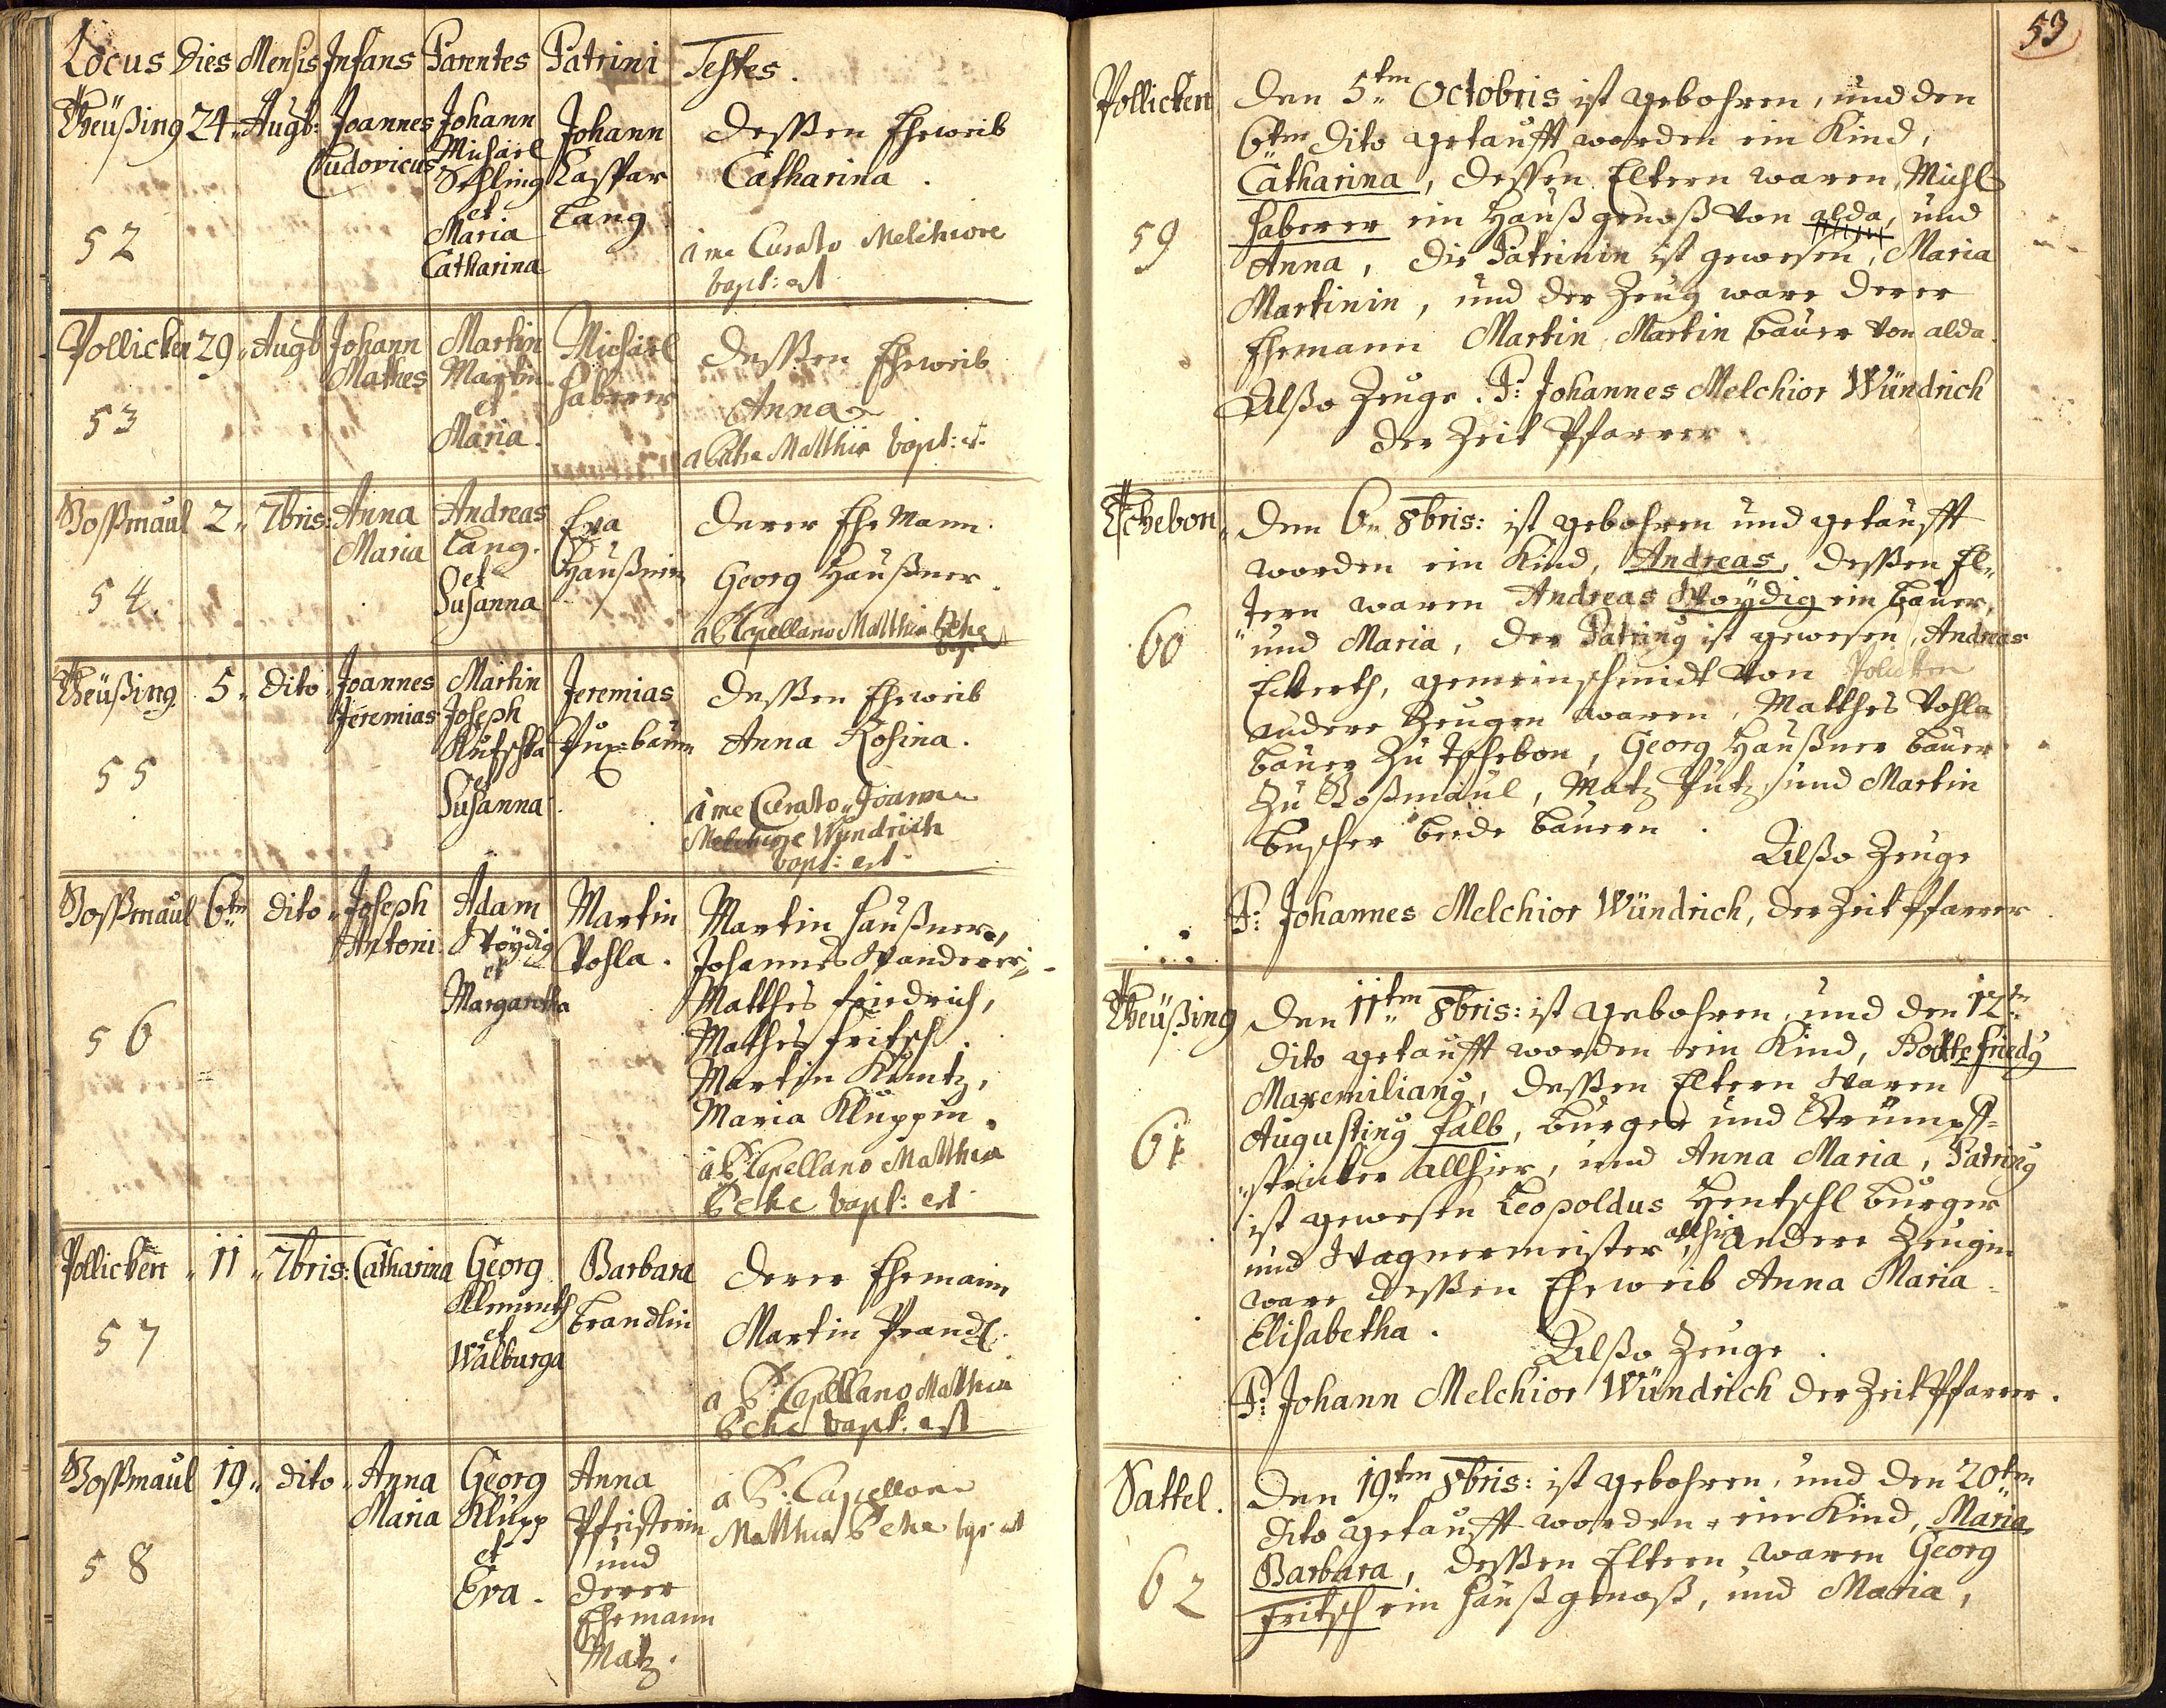 Locus Dies Mensis Infans Parentes Patrini Testes.
Theüßing 24. Augb: Joannes Ludovicus
Johann
Michael
et
Maria
Catharina
Johann
Caspar
Lang
dessen Eheweib
Catharina.
à me Curato Melchiore
bapt: est
52
Pollicken 29. Augb Johann
Mathes
Martin
Martin
et
Maria.
Michael
Haberer
dessen Eheweib
Anna
Matthia bapt: e.
53
Bossmaul 2. 7bris: Anna
Maria
Andreas
Lang.
et
Susanna
Eva
Haußnerin
derer Ehe Mann.
Georg Haußner.
a P. Capellano Matthia
54.
Theüßing 5. dito. Joannes
Jeremias
Martin
Joseph
Kutschka
et
Susanna.
Jeremias
Puxbaum
dessen Eheweib
Anna Rosina.
à me Curato Joanne
Melchiore Wündrich
bapt: est.
55
Bossmaul 6tn dito. Joseph
Antoni.
Adam
Woÿdig
et
Margaretha
Martin
Vohla.
Martin Haußner,
Johannes Wanderer,
Matthes Friedrich,
Mathes Fritsch.
Martin Kuntz,
Maria Kluppin.
à P. Capellano Matthia
bapt: est
56
Pollicken 11. 7bris: Catharina
Georg
Klementh
et
Walburga
Barbara
Brandlin
derer Ehemann
Martin Prandl.
a P. Capellano Matthia
bapt: est
57
Bossmaul 19. dito. Anna
Maria
Georg
Klupp
et
Eva.
Anna
Pfeisterin
und
derer
Ehemann
Matz.
a P. Capellano
Matthia
58
53
Pollicken
59
Den 5tm Octobris ist gebohren, und den
6tm dito getaufft worden ein Kind,
Catharina, dessen Eltern waren, Michl
Haberer ein Haußgenoß von alda, und
Anna, die Patrinin ist gewesen, Maria
Martinin, und der Zeug ware derer
Ehemann Martin Martin baüer von alda.
Alßo Zeuge. P: Johannes Melchior Wündrich
der Zeit Pfarrer
Tschebon
60
Den 6. 8bris: ist gebohren und getaufft
worden ein Kind, Andreas, dessen El-
tern waren Andreas Woÿdig ein baüer,
und Maria, der Patrinus ist gewesen, Andreas
Eckerth, gemeinschmidt von Policken
andere Zeugen waren, Matthes Vohla
baüer zu Tschebon, Georg Haußner baüer
zu Boßmaul, Matz Putz, und Martin
Buscher beede baüern.
Alßo Zeuge
P: Johannes Melchior Wündrich, der Zeit Pfarrer.
Theüßing
61
Den 11tm 8bris: ist gebohren, und den 12tn
dito getaufft worden ein Kind,
Maxemilianus, dessen Eltern waren
Augustinus Falb, bürger und Strümpff-
stricker allhier, und Anna Maria, Patrinus
ist gewesen Leopoldus Hentschl bürger
und Wagnermeister allhier, andere Zeugin
ware dessen Eheweib Anna Maria
Elisabetha.
Alßo Zeuge.
P: Johann Melchior Wündrich der Zeit Pfarrer.
Sattel.
62
Den 19tm 8bris: ist gebohren, und den 20tm
dito getaufft worden ein Kind, Maria
Barbara, dessen Eltern waren Georg
Fritsch ein Haußgenoß, und Maria,